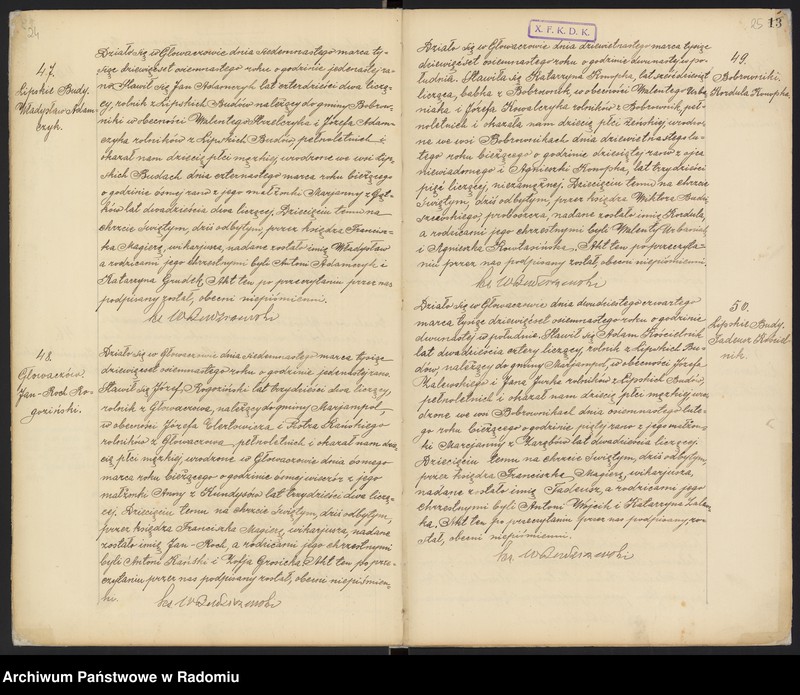 24
47.
Lipskie Budy.
Władysław Adam
czyk.
Działo się w Głowaczowie dnia siedemnastego marca ty-
siąc dziewięćset osiemnastego roku o godzinie jedenastej ra-
no. Stawił się Jan Adamczyk lat czterdzieści dwa liczą-
cy, rolnik z Lipskich Budów należący do gminy Bobrow-
niki w obecności Walentego Strzelczyka i Józefa Adam-
czyka rolników z Lipskich Budów, pełnoletnich i
okazał nam dziecię płci męzkiej, urodzone we wsi Lip-
skich Budach dnia czternastego marca roku bieżącego
o godzinie ósmej rano z jego małżonki Marjanny z
lat dwadzieścia dwa liczącej. Dziecięciu temu na
chrzcie świętym, dziś odbytym, przez księdza Francisz-
ka Magierę, wikarjusza, nadane zostało imię Władysław
a rodzicami jego chrzestnymi byli Antoni Adamczyk i
Katarzyna Grudek. Akt ten po przeczytaniu przez nas
podpisany został, obecni niepiśmienni.
ks.
48
Głowaczów.
Jan-Roch Ro-
goziński.
Działo się w Głowaczowie dnia siedemnastego marca tysiąc
dziewięćset osiemnastego roku o godzinie jedenastej rano.
Stawił się Józef Rogoziński lat trzydzieści dwa liczący,
rolnik z Głowaczowa, należący do gminy Marjampol,
w obecności Józefa i Piotra Kańskiego
rolników z Głowaczowa pełnoletnich i okazał nam dzie-
cię płci męzkiej, urodzone w Głowaczowie dnia ósmego
marca roku bieżącego o godzinie ósmej wieczór z jego
małżonki Anny z lat trzydzieści dwa liczą-
cej. Dziecięciu temu na chrzcie świętym, dziś odbytym,
przez księdza Franciszka Magierę, wikarjusza, nadane
zostało imię Jan-Roch, a rodzicami jego chrzestnymi
byli Antoni Kański i Zofja Grosicka. Akt ten po prze-
czytaniu przez nas podpisany został, obecni niepiśmien-
ni.
ks.
X. F. K. D. K.
25 13
Działo się w Głowaczowie dnia dziewiętnastego marca tysiąc
dziewięćset osiemnastego roku o godzinie dwunastej w po-
łudnie. Stawiła się Katarzyna Konopka, lat sześćdziesiąt
licząca, babka z Bobrownik, w obecności Walentego Urba-
niaka i Józefa Kowalczyka rolników z Bobrownik, peł-
noletnich i okazała nam dziecię płci żeńskiej urodzo-
ne we wsi Bobrownikach dnia dziewiętnastego lu-
tego roku bieżącego o godzinie dziewiątej rano z ojca
niewiadomego i Agnieszki Konopka, lat trzydzieści
pięć liczącej, niezamężnej. Dziecięciu temu na chrzcie
świętym, dziś odbytym, przez księdza Wiktora
proboszcza, nadane zostało imię Kordula,
a rodzicami jego chrzestnymi byli Walenty Urbaniak
i Agnieszka Akt ten po przeczyta-
niu przez nas podpisany został, obecni niepiśmienni.
ks.
49.
Bobrowniki.
Kordula Konopka
Działo się w Głowaczowie dnia dwudziestego czwartego
marca tysiąc dziewięćset osiemnastego roku o godzinie
dwunastej w południe. Stawił się Adam Kościelnik
lat dwadzieścia cztery liczący rolnik z Lipskich Bu-
dów, należący do gminy Marjampol, w obecności Józefa
Zalewskiego i Jana Jurka rolników z Lipskich Budów,
pełnoletnich i okazał nam dziecię płci męzkiej uro-
dzone we wsi Bobrownikach dnia osiemnastego lute-
go roku bieżącego o godzinie piątej rano z jego małżon-
ki Marcjanny z lat dwadzieścia liczącej.
Dziecięciu temu na chrzcie świętym, dziś odbytym,
przez księdza Franciszka Magierę, wikarjusza,
nadane zostało imię Tadeusz, a rodzicami jego
chrzestnymi byli Antoni Wójcik i Katarzyna
Akt ten po przeczytaniu przez nas podpisany zo-
stał, obecni niepiśmienni.
ks.
50.
Lipskie Budy.
Tadeusz Kościel-
nik.
Archiwum Państwowe w Radomiu